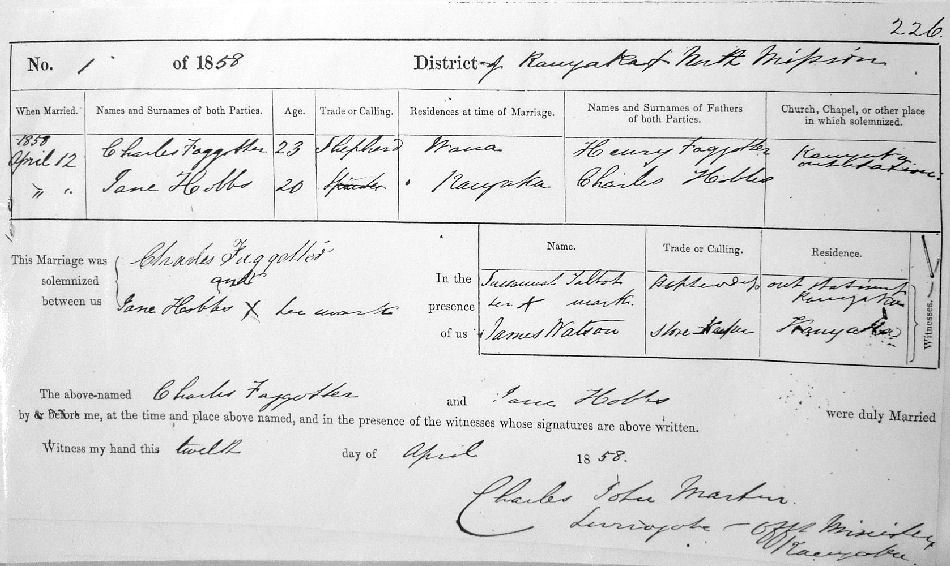 226.
No. 1 of 1858 District of Kanyaka & North Mission
When Married. Names and Surnames of both Parties. Age. Trade or Calling. Residences at time of Marriage. Names and Surnames of Fathers of both Parties. Church, Chapel, or other place in which solemnized.
1858
April 12 Charles Faggotter 23 Shepherd Henry Faggotter Kanyaka outstation
" " Jane Hobbs 20 Kanyaka Charles Hobbs
This Marriage was solemnized between us
Charles Faggotter
and
Jane Hobbs X her mark
In the presence of us
Name. Trade or Calling. Residence.
Talbot out station Kanyaka
her X mark
James Watson Store Keeper Kanyaka
Witnesses.
The above-named Charles Faggotter and Jane Hobbs were duly Married
by or before me, at the time and place above named, and in the presence of the witnesses whose signatures are above written.
Witness my hand this twelth day of April 1858.
Charles John Martin.
Offg Minister
Kanyaka